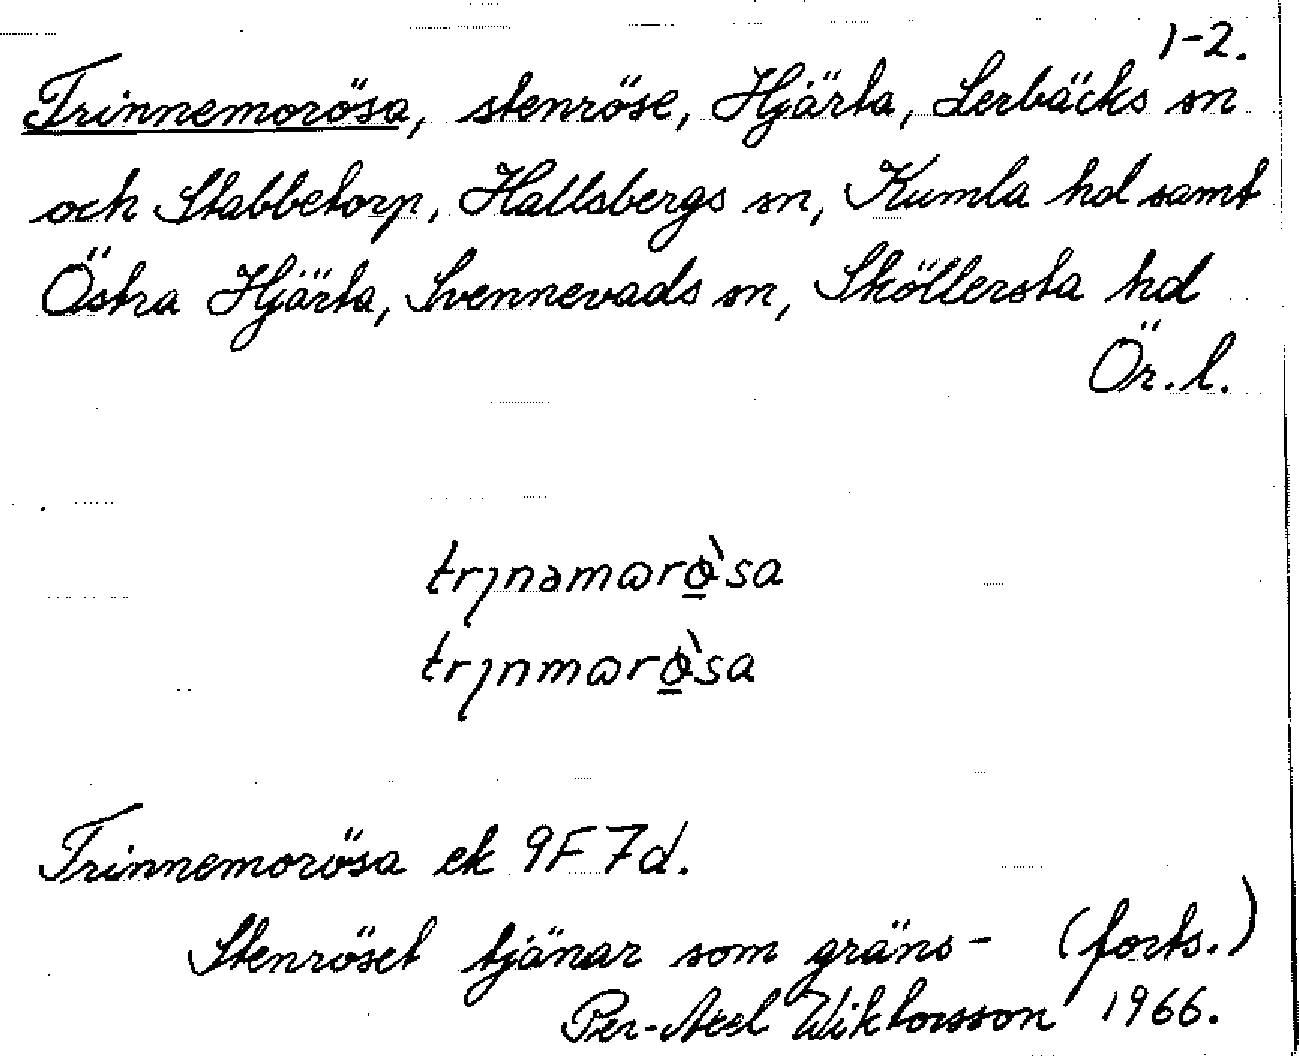 1-2.
Trinnemorösa, stenröse, Hjärta, Lerbäcks sn
och Stabbetorp, Hallsbergs sn, Kumla hd samt
Östra Hjärta, Svennevads sn, Sköllersta hd
Ör. l.
trınəmɷrø̱̀sa
trınmɷrø̱̀sa
Trinnemorösa ek 9F 7d.
Stenröset tjänar som gräns- (forts.)
Per-Axel Wiktorsson 1966.